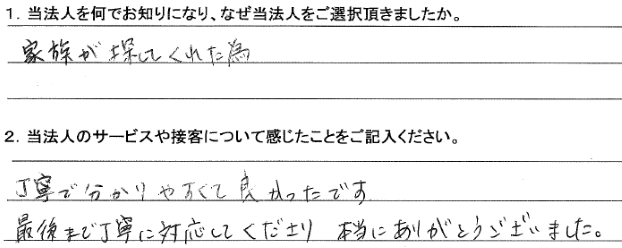 1. 当法人を何でお知りになり、なぜ当法人をご選択頂きましたか。
家族が探してくれた為
2. 当法人のサービスや接客について感じたことをご記入ください。
丁寧で分かりやすくて良かったです
最後まで丁寧に対応してくださり 本当にありがとうございました。